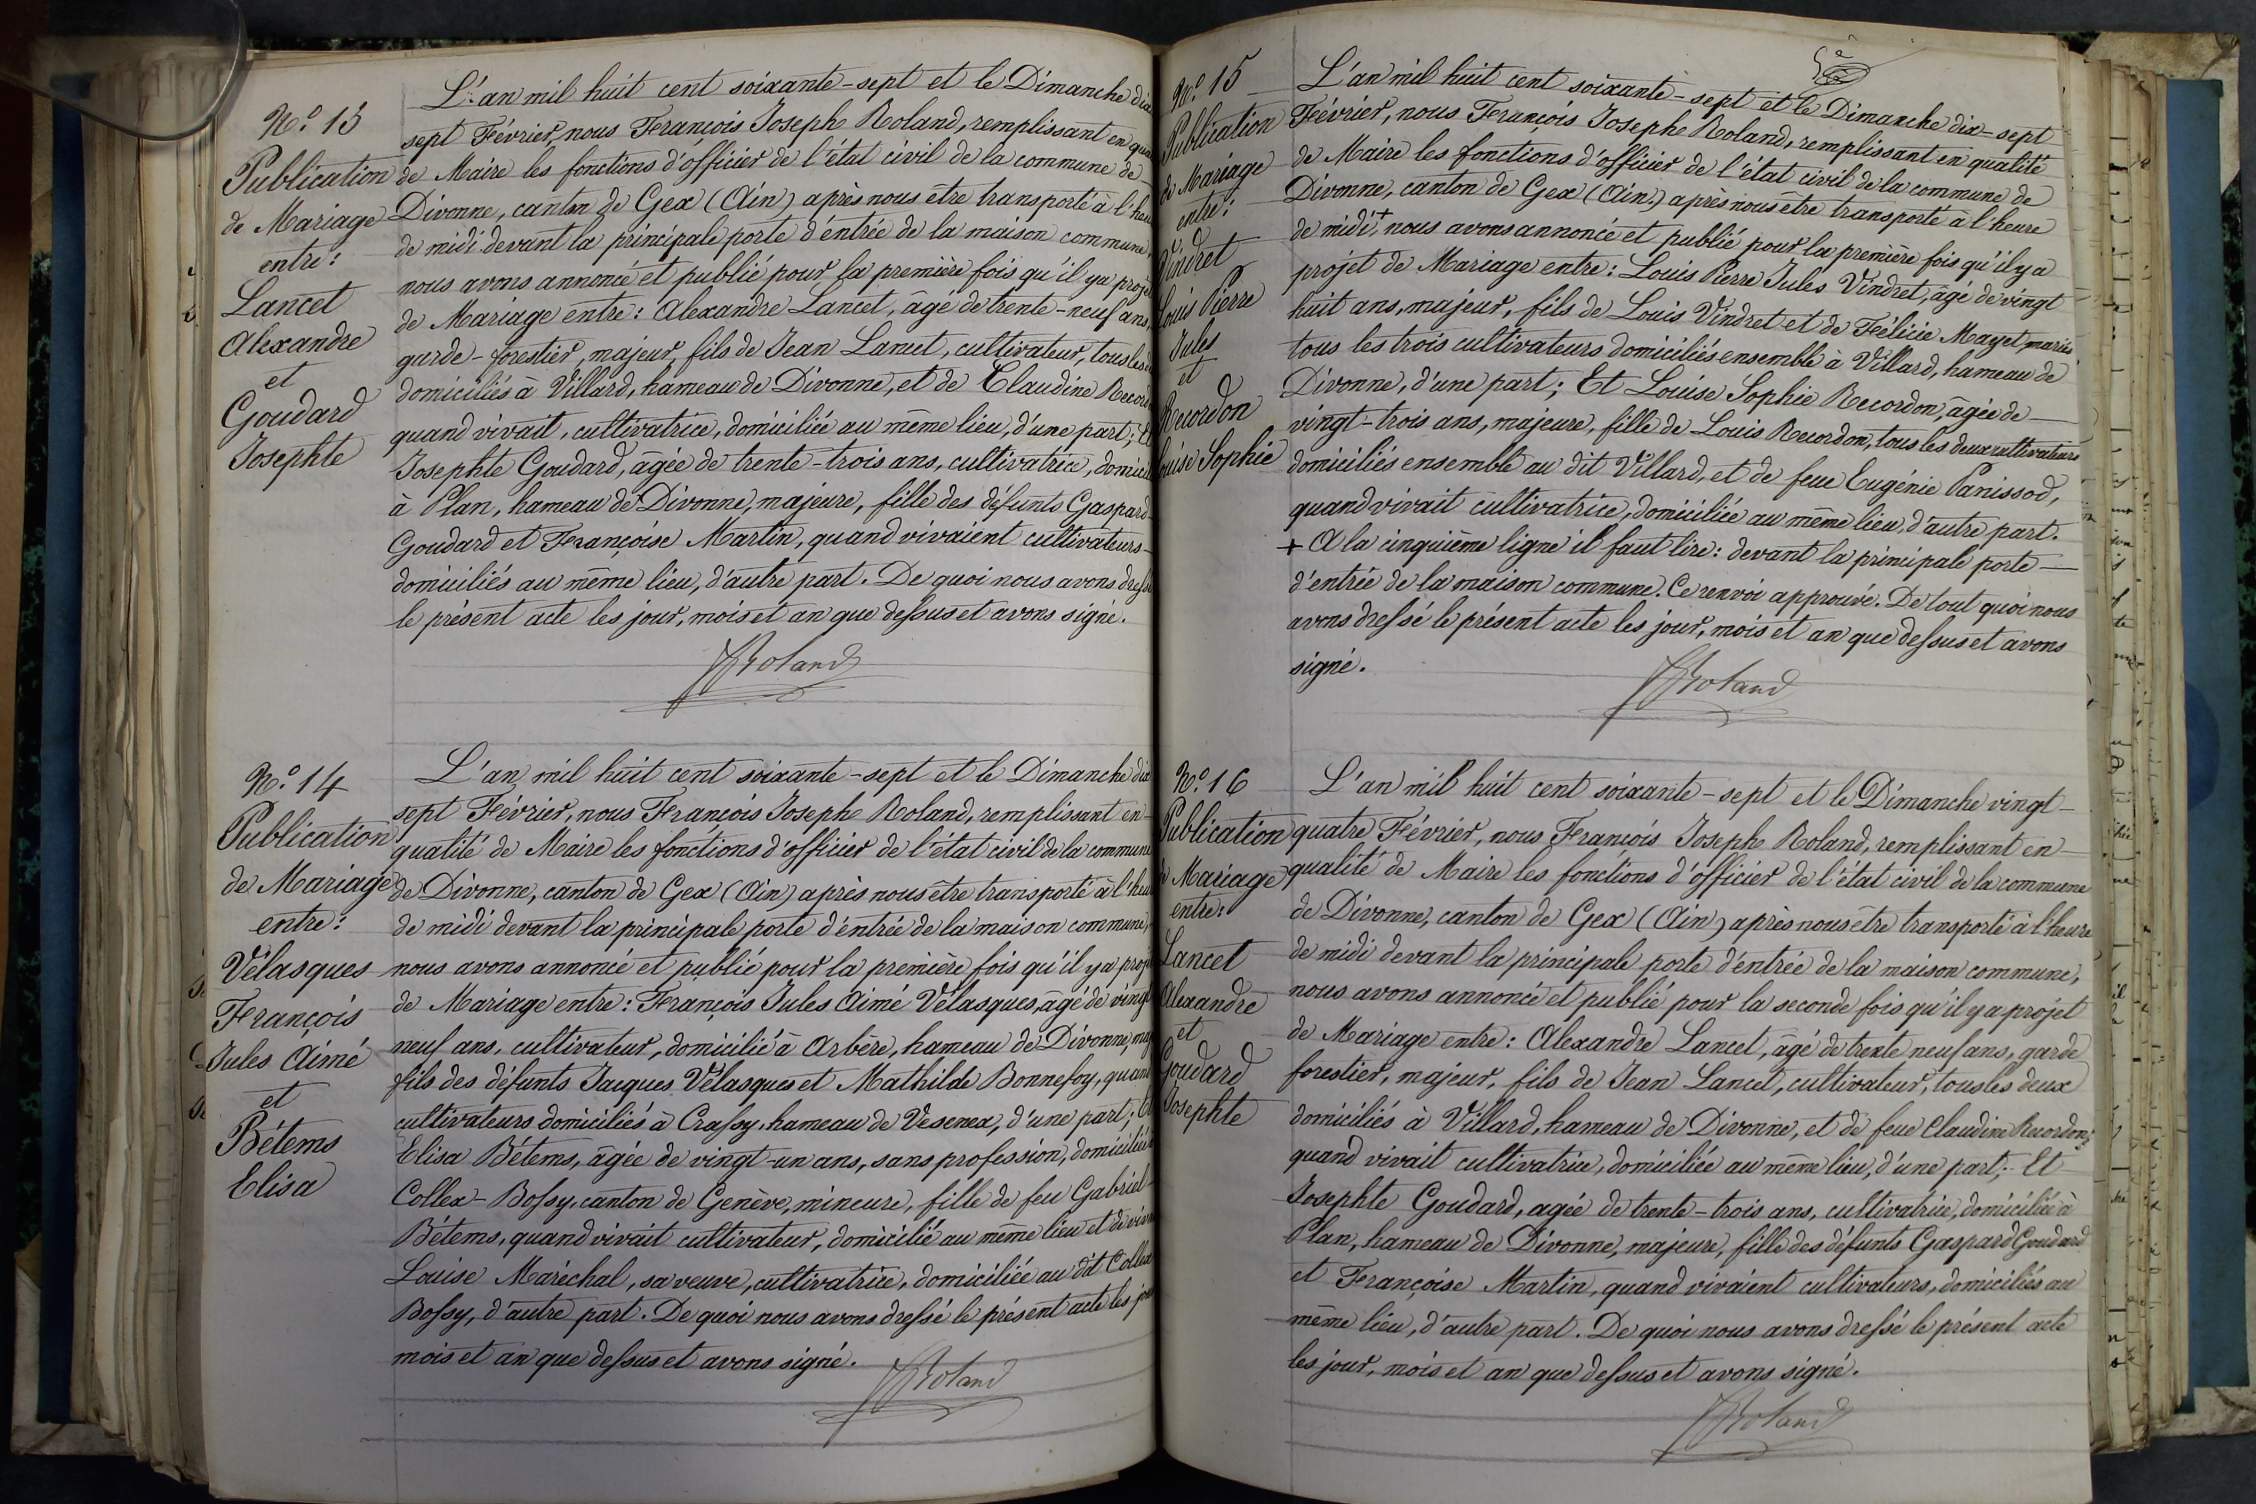 N.° 13
Publication
de Mariage
entre:
Lancet
Alexandre
et
Goudard
Josephte
L'an mil huit cent soixante-sept et le Dimanche dix
sept Février, nous François Joseph Roland, remplissant en qua
de Maire les fonctions d'officier de l'état civil de la commune de
Divonne, canton de Gex (Ain) après nous être transporté à l'heu
de midi devant la principale porte d'éntrée de la maison commune,
nous avons annoncé et publié pour la première fois qu'il ya proje
de Mariage entre: Alexandre Lancet, âgé de trente-neuf ans,
garde-forestier, majeur, fils de Jean Lancet, cultivateur, tous les
domiciliés à Villard, hameau de Divonne, et de Claudine Recor
quand vivait, cultivatrice, domiciliée au même lieu, d'une part; Et
Josephte Goudard, âgée de trente-trois ans, cultivatrice, domicil
à Plan, hameau de Divonne, majeure, fille des défunts Gaspard
Goudard et Françoise Martin, quand vivaient cultivateurs
domiciliés au même lieu, d'autre part. De quoi nous avons dressé
le présent acte les jour, mois et an que dessus et avons signé.
JRoland
N.° 14
Publication
de Mariage
entre:
Vélasques
François
Jules Aimé
et
Bétems
Elisa
L'an mil huit cent soixante-sept et le Dimanche dix
sept Février, nous François Joseph Roland, remplissant en
qualité de Maire les fonctions d'officier de l'état civil de la commune
de Divonne, canton de Gex (Ain) après nous être transporté à l'heu
de midi devant la principale porte d'éntrée de la maison commune,
nous avons annoncé et publié pour la première fois qu'il ya proje
de Mariage entre: François Jules Aimé Vélasques, âgé de vingt
neuf ans, cultivateur, domicilié à Arbère, hameau de Divonne, maj
fils des défunts Jacques Vélasques et Mathilde Bonnefoy, quand
cultivateurs domiciliés à Crassy, hameau de Vesenex, d'une part; Et
Elisa Bétems, âgée de vingt-un ans, sans profession, domiciliée
Collex-Bossy, canton de Genève, mineure, fille de feu Gabriel
Bétems, quand vivait cultivateur, domicilié au même lieu et de viva
Louise Maréchal, sa veuve, cultivatrice, domiciliée au dit Collex
Bossy, d'autre part. De quoi nous avons dressé le présent acte les jour
mois et an que dessus et avons signé.
JRoland
N.° 15
Publication
de Mariage
entre:
Vindret
Louis Pierre
Jules
et
Recordon
Louise Sophie
L'an mil huit cent soixante-sept et le Dimanche dix-sept
Février, nous François Joseph Roland, remplissant en qualité
de Maire les fonctions d'officier de l'état civil de la commune de
Divonne, canton de Gex (Ain) après nous être transporté à l'heure
de midi + nous avons annoncé et publié pour la première fois qu'il y a
projet de Mariage entre: Louis Pierre Jules Vindret, âgé de vingt
huit ans, majeur, fils de Louis Vindret et de Félicie Mayet, mariés
tous les trois cultivateurs domiciliés ensemble à Villard, hameau de
Divonne, d'une part; Et Louise Sophie Recordon, âgée de
vingt-trois ans, majeure, fille de Louis Recordon, tous les deux cultivateurs
domiciliés ensemble au dit Villard, et de feue Eugénie Panissod,
quand vivait cultivatrice, domiciliée au même lieu, d'autre part.
+ A la cinquième ligne il faut lire: devant la principale porte
d'entrée de la maison commune. Ce renvoi approuvé. De tout quoi nous
avons dressé le présent acte les jour, mois et an que dessus et avons
signé.
JRoland
N.° 16
Publication
de Mariage
entre:
Lancet
Alexandre
et
Goudard
Josephte
L'an mil huit cent soixante-sept et le Dimanche vingt-
quatre Février, nous François Joseph Roland, remplissant en
qualité de Maire les fonctions d'officier de l'état civil de la commune
de Divonne, canton de Gex (Ain) après nous être transporté à l'heure
de midi devant la principale porte d'éntrée de la maison commune,
nous avons annoncé et publié pour la seconde fois qu'il y a projet
de Mariage entre: Alexandre Lancet, âgé de trente neuf ans, garde
forestier, majeur, fils de Jean Lancet, cultivateur, tous les deux
domiciliés à Villard, hameau de Divonne, et de feue Claudine Recordon,
quand vivait cultivatrice, domiciliée au même lieu, d'une part; Et
Josephte Goudard, agée de trente-trois ans, cultivatrice, domiciliée à
Plan, hameau de Divonne, majeure, fille des défunts Gaspard Goudard
et Françoise Martin, quand vivaient cultivateurs, domiciliés au
même lieu, d'autre part. De quoi nous avons dressé le présent acte
les jour, mois et an que dessus et avons signé.
JRoland